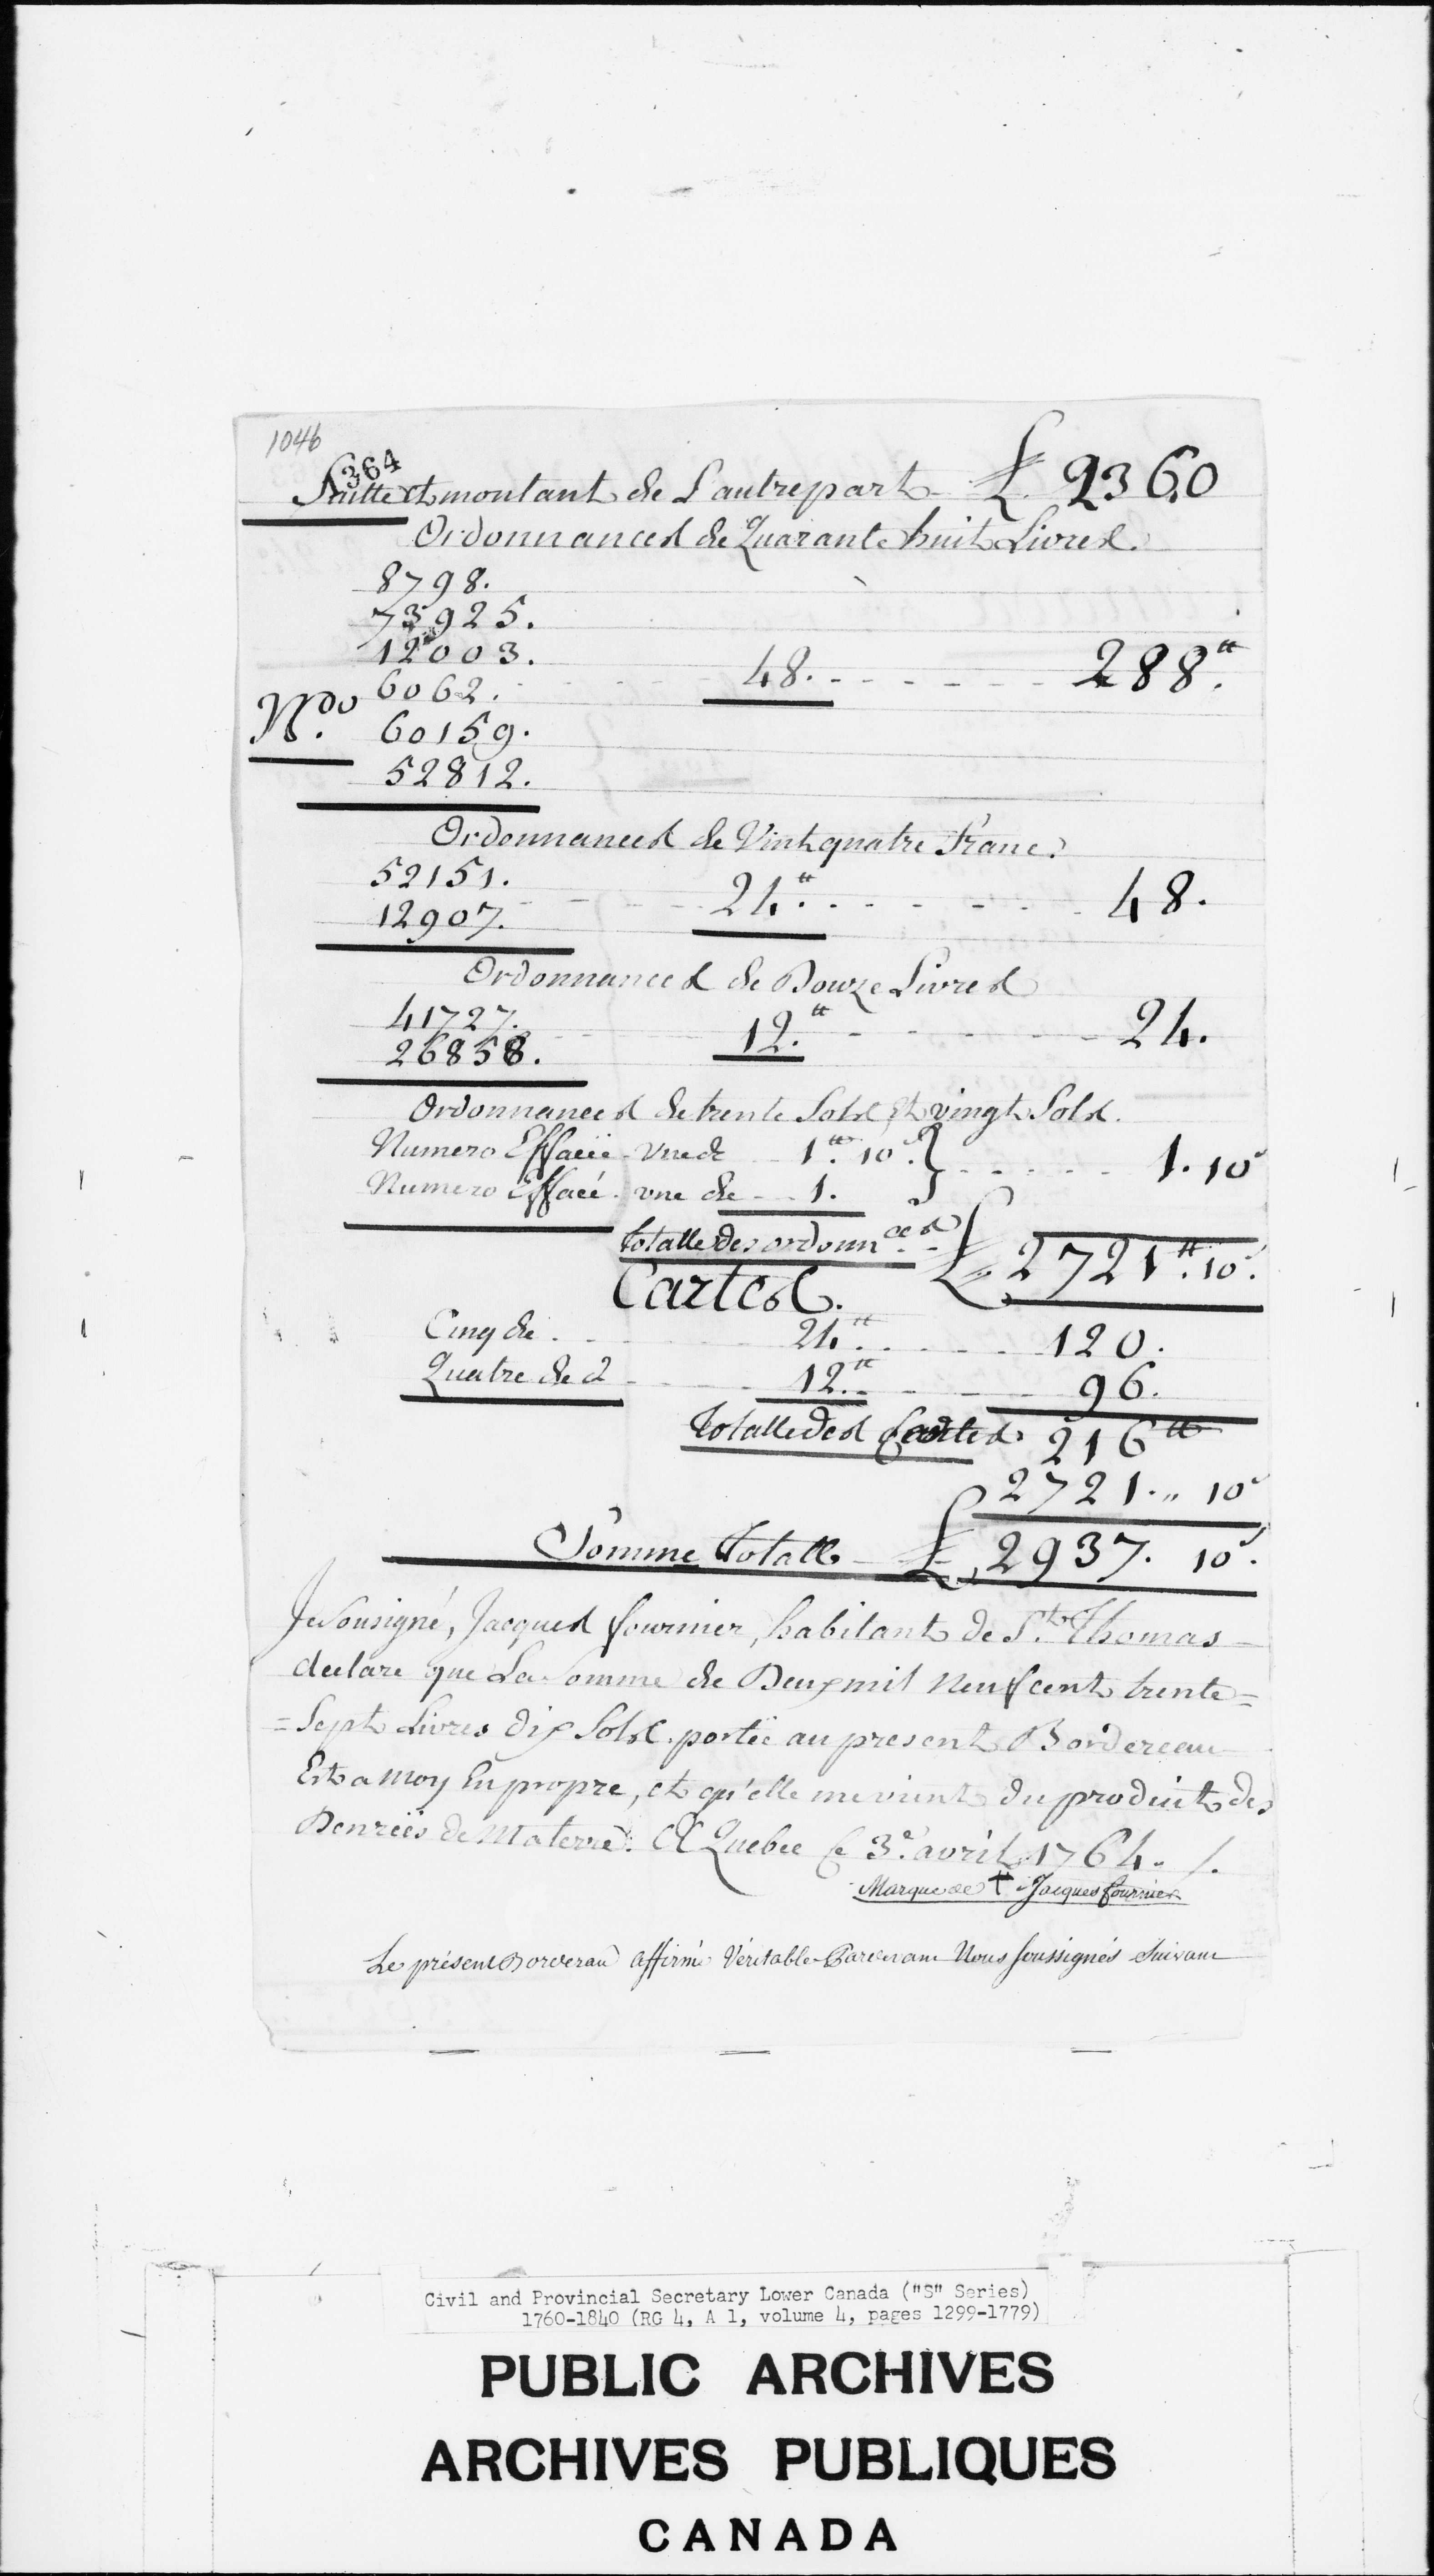 1046
364
Suitte et montant de L'autrepart £ 2360
Ordonnances de Quarante huit Livres.
8798.
73925.
12003.
6062. 48. 288.tt
Nos 60159.
52812.
Ordonnances de Vint quatre Franc.
52151.
12907. 24.tt 48.
Ordonnances de Douze Livres
41727.
26858. 12.tt 24.
Ordonnances de trente Sols Et vingt Sols.
Numero Effacée une de 1.tt 10s } 1. 10s
Numero Effacé. une de 1.
totalle des ordonnces £ 2721tt. 10s.
Cartes.
Cinq de 24.tt 120.
Quatre de d 12.tt 96.
totalle des Cartes 216tt
2721. „ 10s
Somme totalle £ 2937. 10s.
Je Sousigné, Jacques fournier, habitant de St. Thomas
declare que La Somme de Deux mil Neuf cent trente=
=Sept Livres dix Sols portée au present Bordereau
Est a Moy En propre, et qu'elle me vient du produit des
Denrées de Ma terre. A Quebec Ce 3e. avril 1764. /.
Marque de † Jacques fournier
Le présent Bordereau affirmé Véritable Pardevant Nous soussignés suivant
Civil and Provincial Secretary Lower Canada ("S" Series)
1760-1840 (RG 4, A 1, volume 4, pages 1299-1779)
PUBLIC ARCHIVES
ARCHIVES PUBLIQUES
CANADA